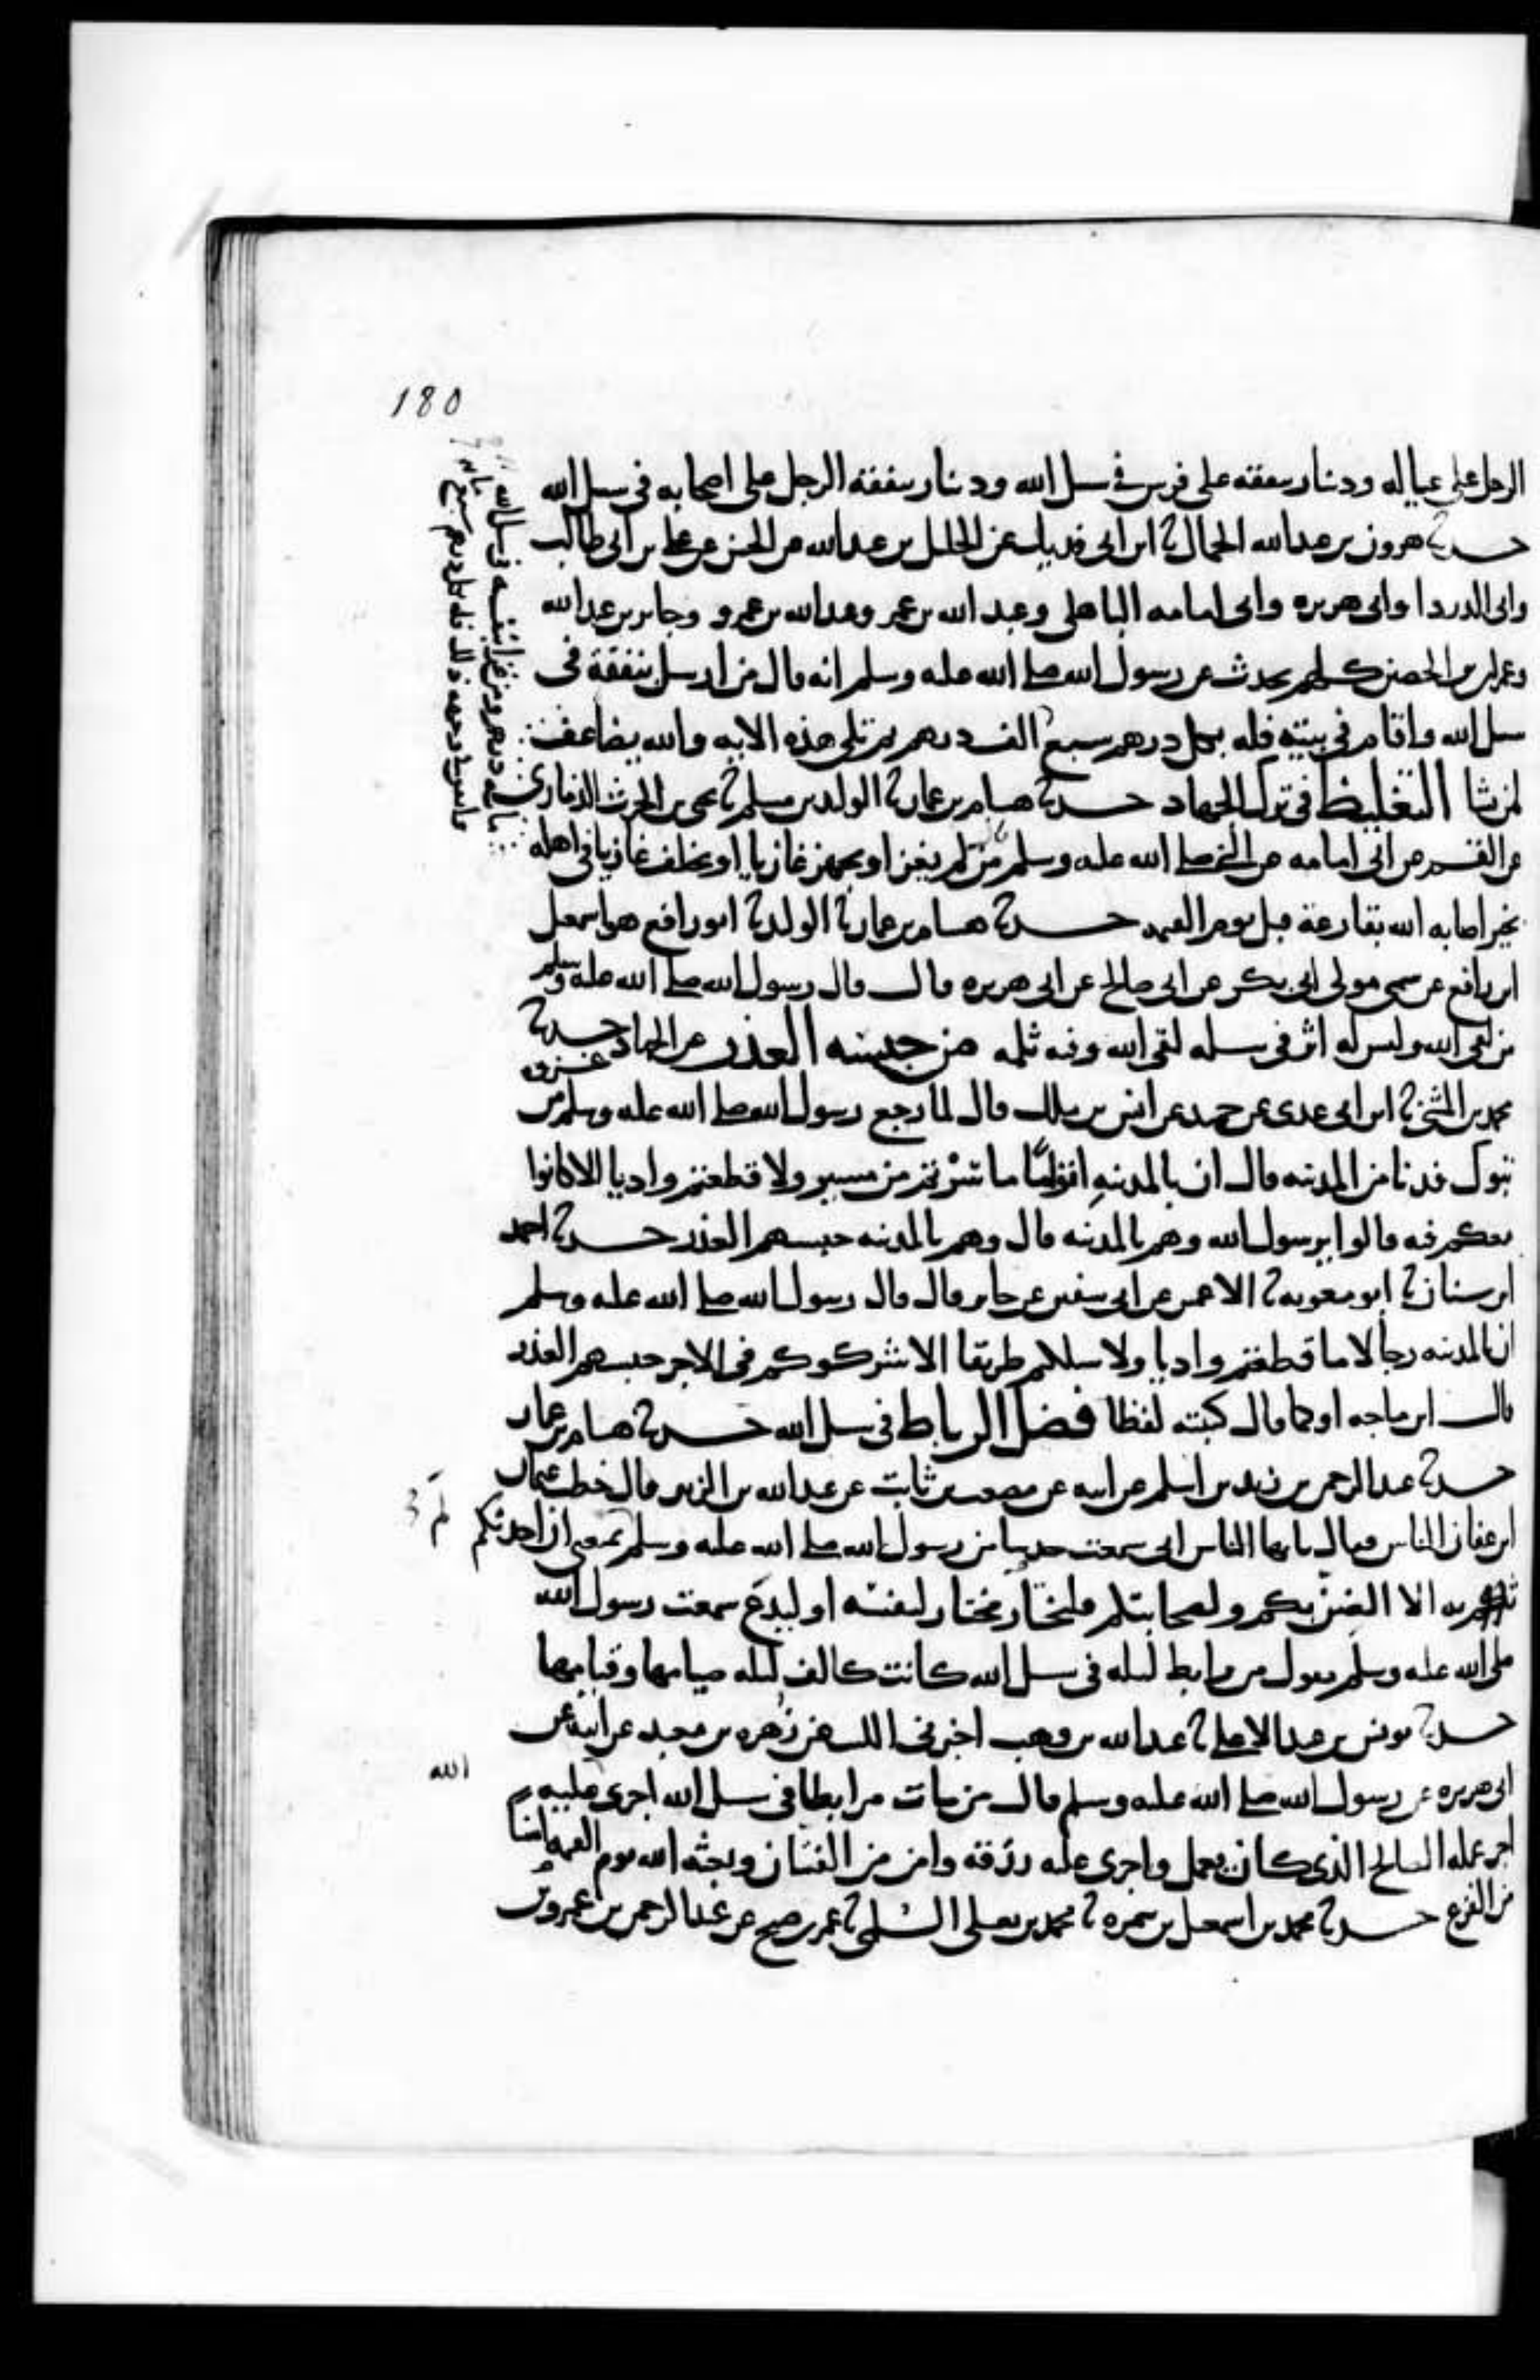 180
الرجل على عياله ودينار ينفقه على فرس في سبيل الله ودينار ينفقه الرجل على اصحابه في سبيل الله
حدثنا هرون بن عبد الله الحمال ثنا ابن ابي فديك عن الخليل بن عبد الله عن الحسن عن علي بن ابي طالب
وابي الدردا وابي هريره وابي امامه الباهلي وعبد الله بن عمر وعبد الله بن عمرو وجابر بن عبد الله
وعمران بن الحصين كلهم يحدث عن رسول الله صلى الله عليه وسلم انه قال من ارسل بنفقة في
سبيل الله واقام في بيته فله بكل درهم سبع مائة درهم ومن غزا بنفسه في سبيل الله
الف درهم ثم تلى هذه الايه والله يضاعف
لمن يشا التغليظ في ترك الجهاد حدثنا هشام بن عمار ثنا الوليد بن مسلم ثنا يحيى بن الحرث الذماري
عن القسم عن ابي امامه عن النبي صلى الله عليه وسلم من لم يغز او يجهز غازيا او يخلف غازيا في اهله
بخير اصابه الله بقارعة قبل يوم القيمه حدثنا هشام بن عمار ثنا الوليد ثنا ابو رافع هو اسمعيل
ابن رافع عن سمي مولى ابي بكر عن ابي صالح عن ابي هريره قال قال رسول الله صلى الله عليه وسلم
من لقي الله وليس له اثر في سبيله لقي الله وفيه ثلمه من حبسه العذر عن الجهاد حدثنا
محمد بن المثنى ثنا ابن ابي عدي عن حميد عن انس بن ملك قال لما رجع رسول الله صلى الله عليه وسلم من غزوه
تبوك فدنا من المدينه قال ان بالمدينه لقوما ما سرتم من مسير ولا قطعتم واديا الا كانوا
معكم فيه قالوا يرسول الله وهم بالمدينه قال وهم بالمدينه حبسهم العذر حدثنا احمد
ابن سنان ثنا ابو معويه ثنا الاعمش عن ابي سفين عن جابر قال قال رسول الله صلى الله عليه وسلم
ان بالمدينه رجالا ما قطعتم واديا ولا سلكتم طريقا الا شركوكم في الاجر حبسهم العذر
قال ابن ماجه او كما قال كتبته لفظا فضل الرباط في سبيل الله حدثنا هشام بن عمار
حدثنا عبد الرحمن بن زيد بن اسلم عن ابيه عن مصعب بن ثابت عن عبد الله بن الزبير قال خطب عثمان
ابن عفان الناس فقال يايها الناس اني سمعت حديثا من رسول الله صلى الله عليه وسلم لم يمنعني ان احدثكم
به الا الضن بكم وبصحابتكم فليختر مختار لنفسه او ليدع سمعت رسول الله
صلى الله عليه وسلم يقول من رابط ليله في سبيل الله كانت كالف ليله صيامها وقيامها
حدثنا يونس بن عبد الاعلى ثنا عبد الله بن وهب اخبرني الليث عن زهره بن معبد عن ابيه عن
ابي هريره عن رسول الله صلى الله عليه وسلم قال من مات مرابطا في سبيل الله اجرى الله عليه
اجر عمله الصالح الذي كان يعمل واجرى عليه رزقه وامن من الفتان وبعثه الله يوم القيمه امنا
من الفزع حدثنا محمد بن اسمعيل بن سمره ثنا محمد بن يعلى السلمي ثنا عمر بن صبح عن عبد الرحمن بن عمرو عن